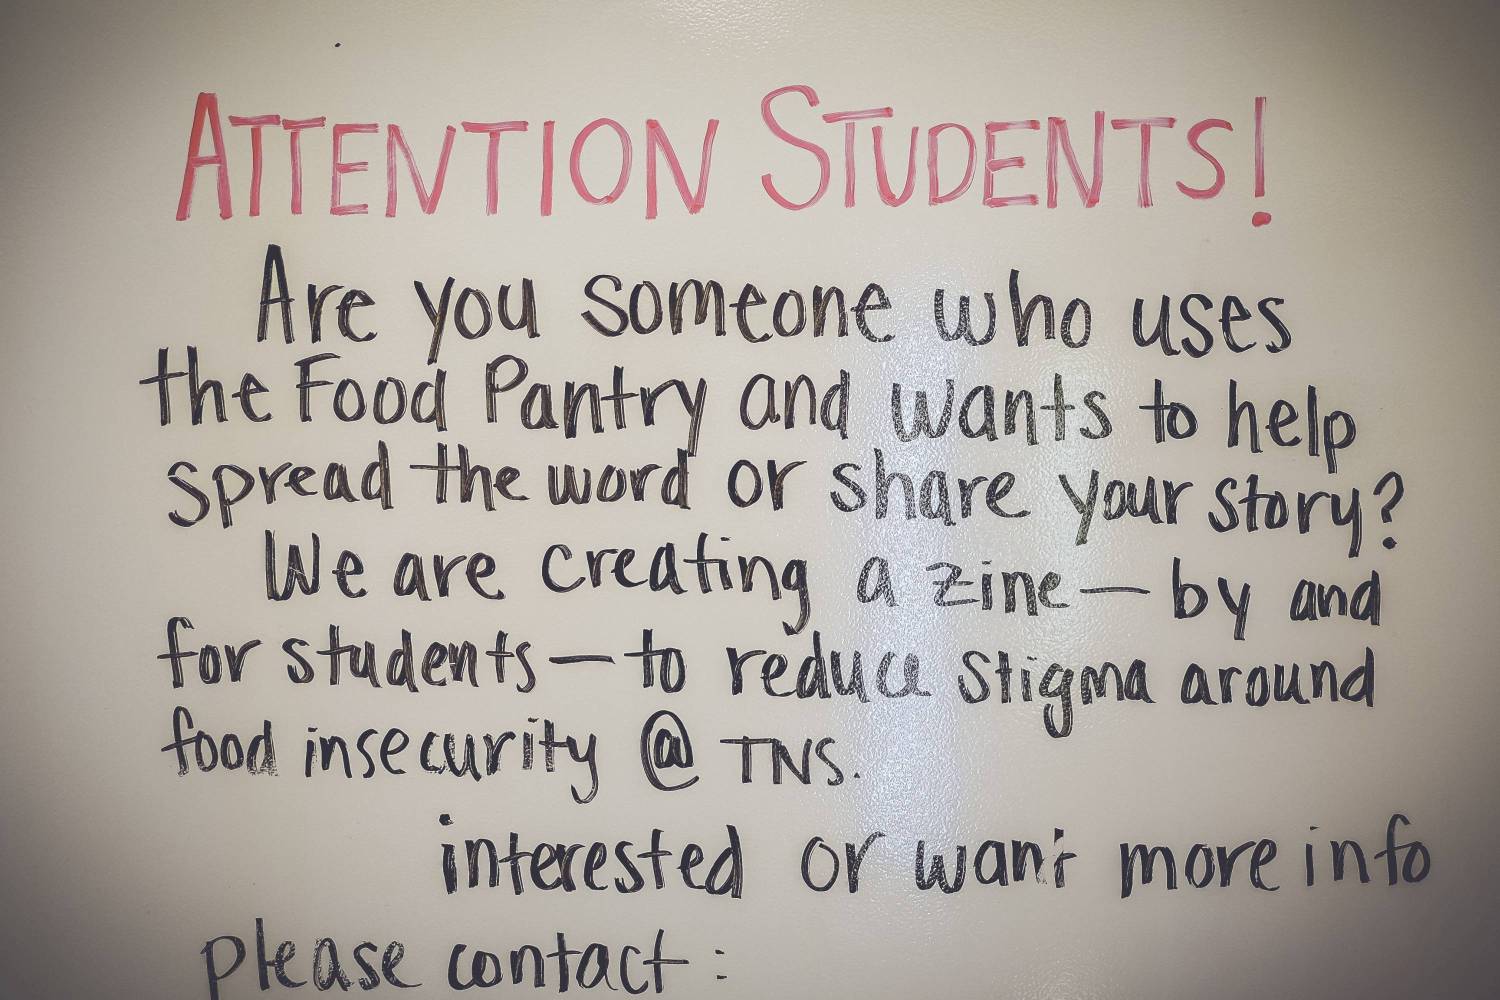 ATTENTION STUDENTS!
Are you someone who uses
the Food Pantry and wants to help
spread the word or share your story?
We are creating a zine — by and
for students — to reduce stigma around
food insecurity @ TNS.
interested or want more info
please contact :